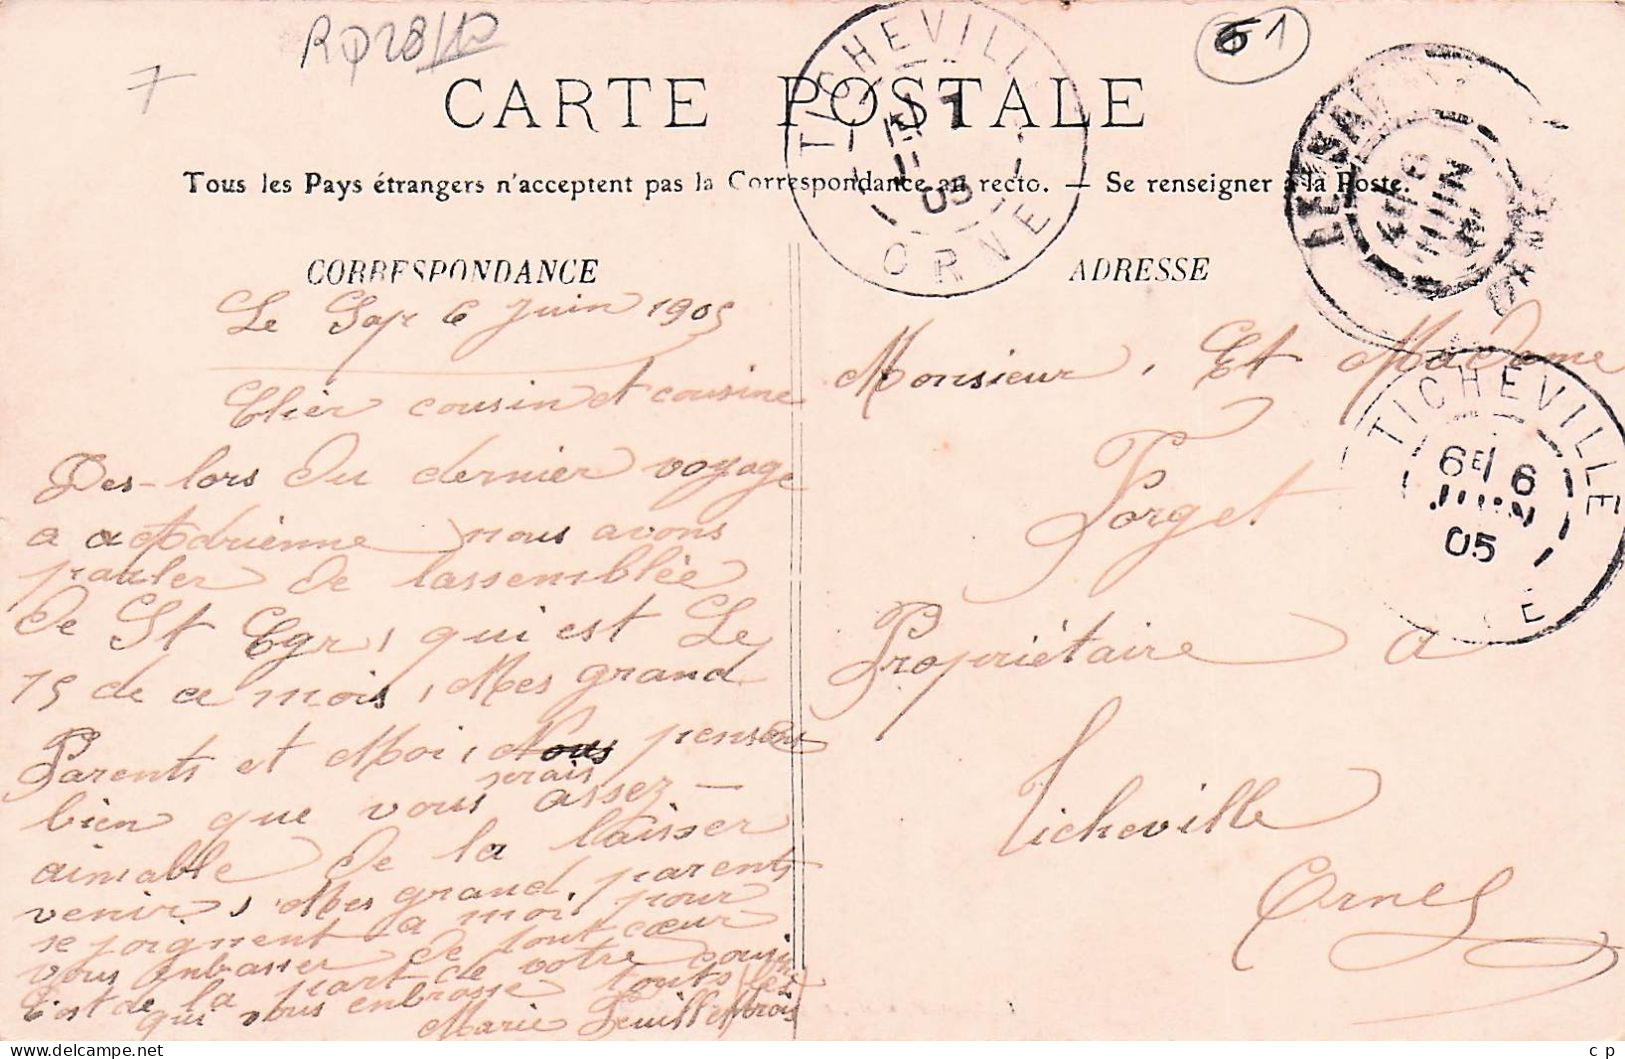 RP 28/10
7
61
CARTE POSTALE
Tous les Pays étrangers n'acceptent pas la Correspondance au recto. — Se renseigner à la Poste.
TICHEVILLE
7
05
ORNE
LE SAP
6
JUIN
ORNE
CORRESPONDANCE
Le Sap 6 Juin 1905
Cher cousin et cousine
Des-lors du dernier voyage
a Adrienne nous avons
parler de lassemblée
de St Egr, qui est Le
15 de ce mois, Mes grand
Parents et Moi, Nous pensons
bien que vous serais assez —
aimable de la laisser
venir, Mes grand, parents
se joignent a moi pour
vous enbasser de tout cœur
C'est de la part de votre cousine
qui vous enbrasse touts les trois
Marie
ADRESSE
Monsieur, Et Madame
Forget
Propriétaire a
Ticheville
Orne
TICHEVILLE
6E 6
JUIN
05
E
© cp